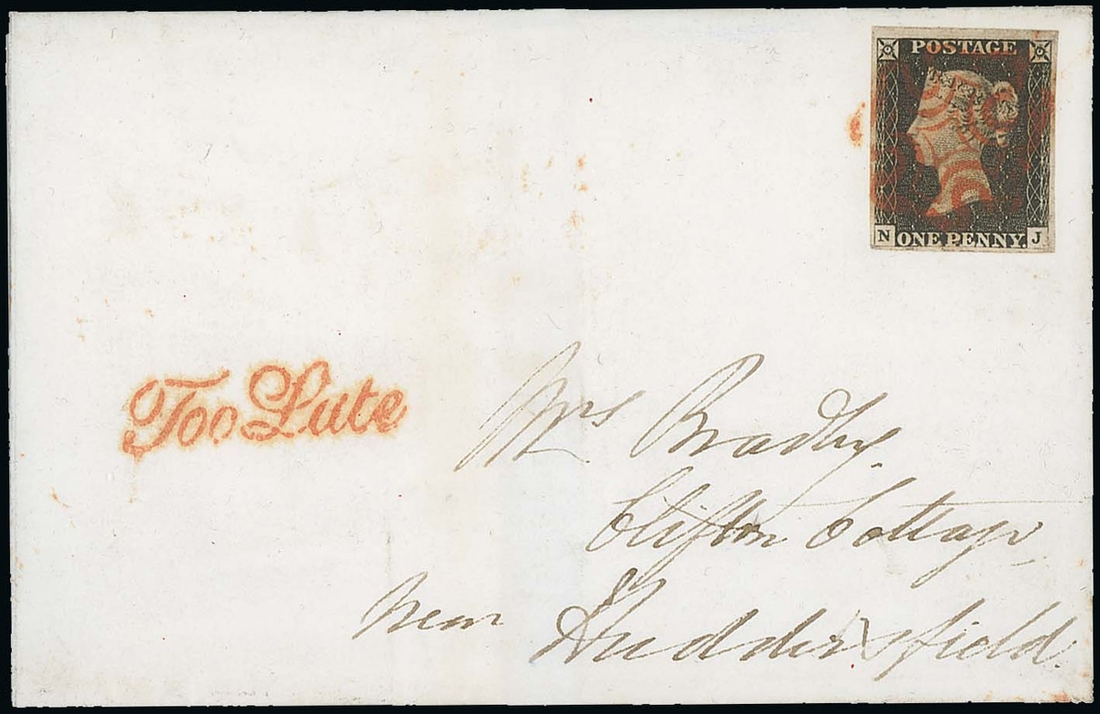 POSTAGE
N ONE PENNY. J
Too Late
Mrs Bradley
Clifton Cottage
Near Huddersfield.